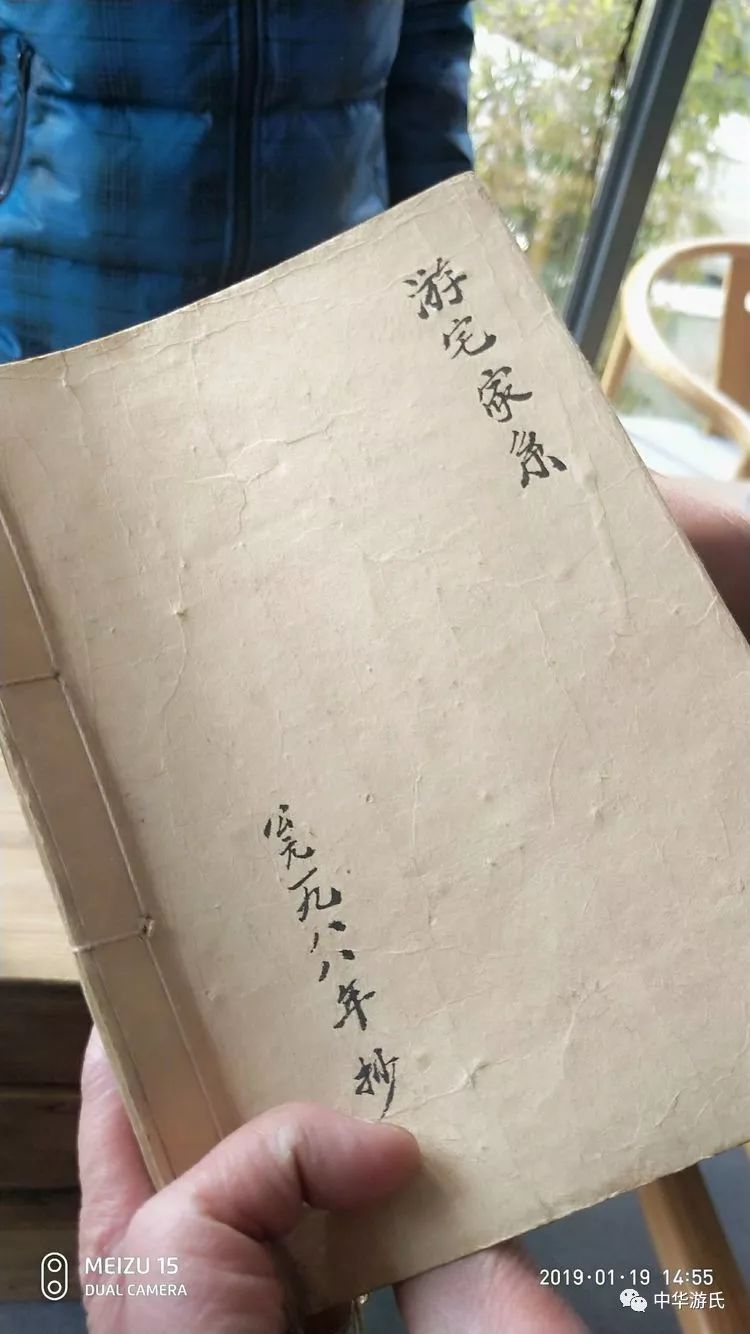 游宅家系
公元一九八八年抄
MEIZU 15
DUAL CAMERA
2019·01·19 14:55
中华游氏